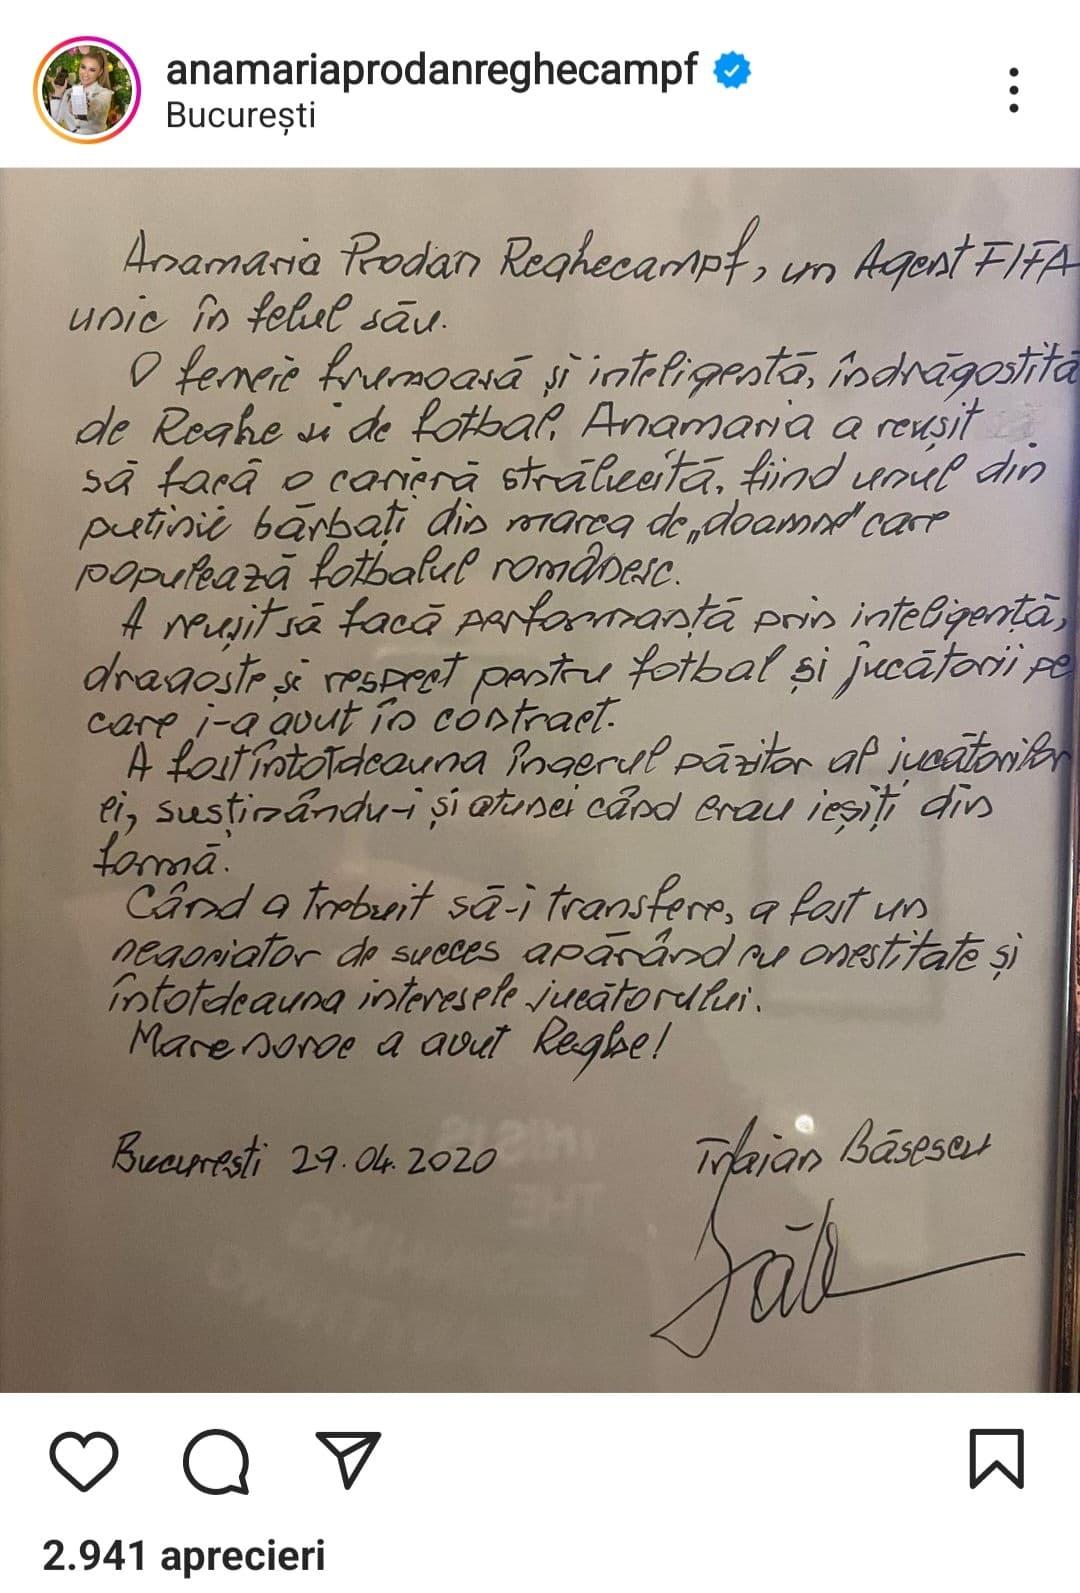 anamariaprodanreghecampf
București
Anamaria Prodan Reghecampf, un Agent FIFA
unic în felul său.
O femeie frumoasă și inteligentă, îndrăgostită
de Reghe și de fotbal, Anamaria a reușit
să facă o carieră strălucită, fiind unul din
puținii bărbați din marea de „doamne" care
populează fotbalul românesc.
A reușit să facă performanță prin inteligență,
dragoste și respect pentru fotbal și jucătorii pe
care i-a avut în contract.
A fost întotdeauna îngerul păzitor al jucătorilor
ei, susținându-i și atunci când erau ieșiți din
formă.
Când a trebuit să-i transfere, a fost un
negociator de succes apărând cu onestitate și
întotdeauna interesele jucătorului.
Mare noroc a avut Reghe!
București 29.04.2020
Traian Băsescu
2.941 aprecieri